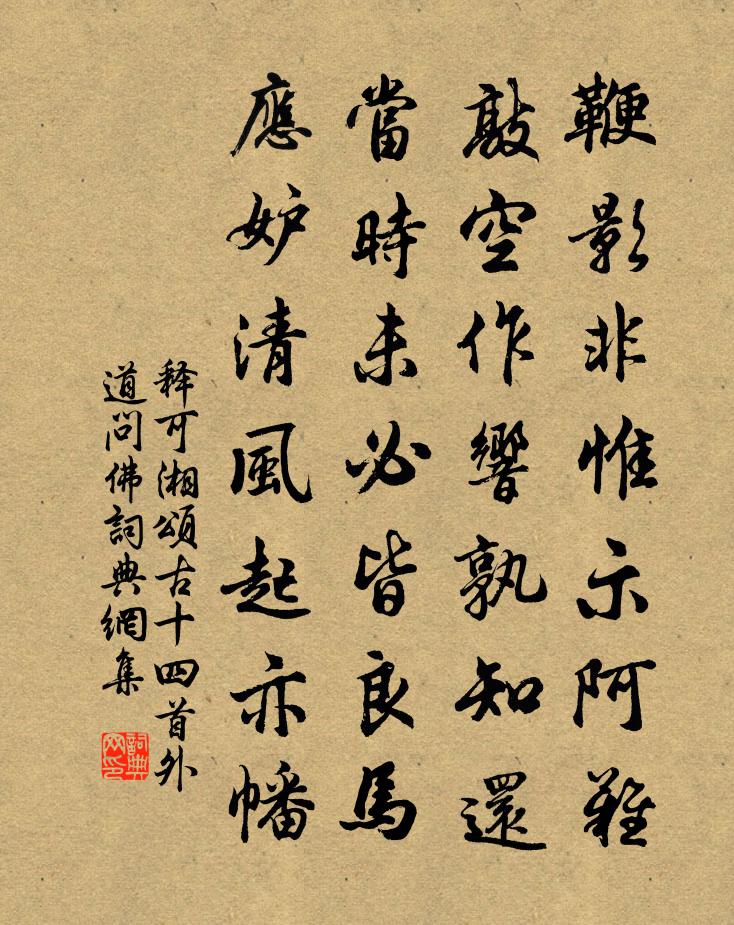 鞭影非惟示阿難
敲空作響孰知還
當時未必皆良馬
應妒清風起亦幡
释可湘頌古十四首外
道問佛詞典網集
詞典网印